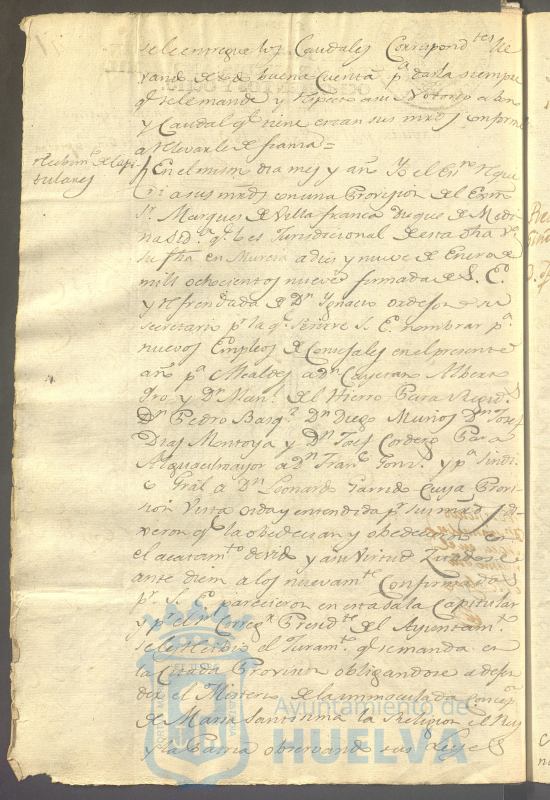 se le entregue los Caudales Correspond.tes lle
vando de todo buena Cuenta p.a darla siempre
q.e se le mande y respecto a su Notorio abono
y Caudal q.e tiene
a relevarle de fianza =
Recibim.to de Capi
tulares
En el mismo dia mes y año Yo el Es.no
a sus mrds con una Provision del Exmo
S.r Marques de Villa franca Duque de Medi
na Sid.a q.e lo es Jurisdicional de esta dha V.a
su fha en Murcia a diez y nueve de Enero de
mill ochocientos nueve firmada de S. E.
y refrendada de D.n Ignacio de
secretario p.r la q.e se sirve S. E. nombrar p.a
nuevos Empleos de Consejales en el presente
año p.a Alcaldes a D.n Cayetano Albear
dro y D.n Man.l del Hierro Para Regid.s
D.n Pedro Barg.a D.n Diego Muños D.n Josef
Dias Montoya y D.n Josef Cordero Para
Alguacil mayor a D.n Fran.co Gonz. y p.a Sindi
co Gral a D.n Leonardo Garrido Cuya Provi
sion Vista oida y entendida p.r sus mrds di
xeron q.e la obedecian y obedecieron con
el acatam.to devido y a su Virtud
ante diem a los nuevam.te Confirmados
p.r S. E. parecieron en esta Sala Capitular
y p.r el S.r Correg.r Presid.te del Ayuntam.to
se les recibio el Juram.to q.e se manda en
la Citada Provision obligandose a defen
der el Misterio de la inmaculada Concep.n
de Maria Santisima la Religion el Rey
y la Patria observando sus Leyes
Ayuntamiento de
HUELVA